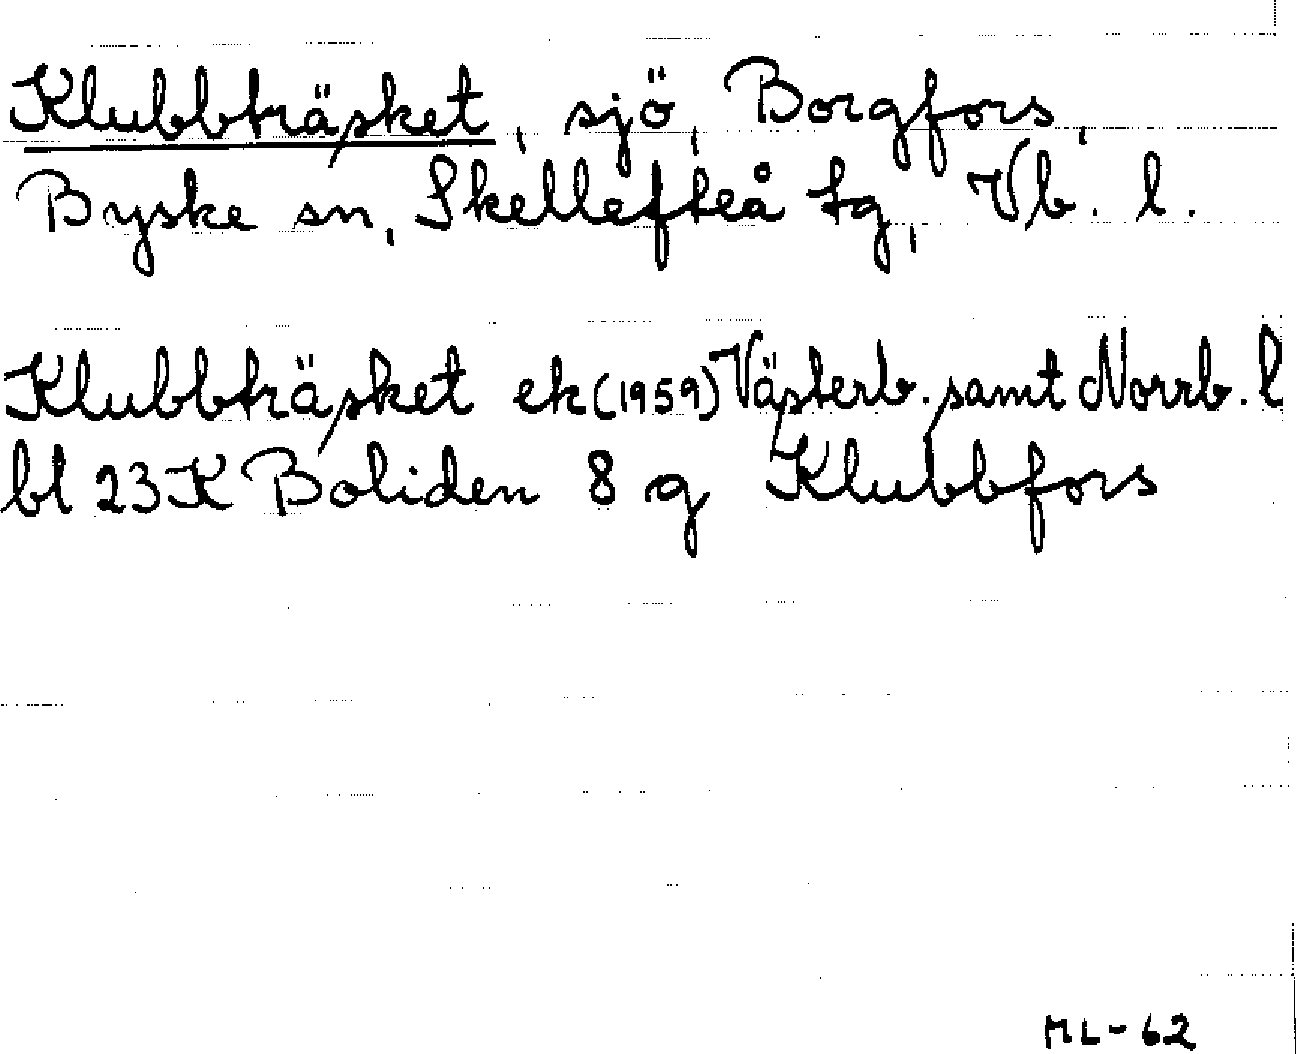 Klubbträsket, sjö, Borgfors,
Byske sn, Skellefteå tg, Vb. l.
Klubbträsket ek (1959) Västerb. samt Norrb. l
bl 23K Boliden 8 g Klubbfors
ML-62